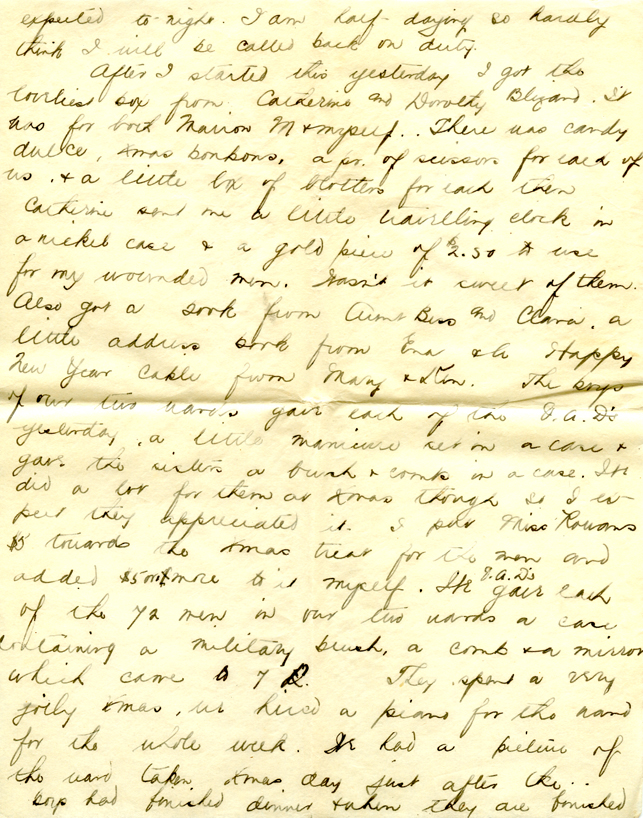 expected to-night. I am half-daying so hardly
think I will be called back on duty.
After I started this yesterday I got the
loveliest box from Catherine and Dorothy Blizard. It
was for both Marion M & myself. There was candy
dulce, Xmas bonbons, a pr. of scissors for each of
us, & a little bx of blotters for each then
Catherine sent me a little travelling clock in
a nickel case & a gold piece of $2.50 to use
for my wounded men. Wasn't it sweet of them.
Also got a book from Aunt Bess and Clara, a
little address book from Ena & a Happy
New Year Cable from Mary & Don. The boys
of our two wards gave each of the V.A.D's
yesterday, a little manicure set in a case &
gave the sisters a brush & comb in a case. We
did a lot for them at Xmas though so I ex-
pect they appreciated it. I put Miss Rowans
$5 towards the Xmas treat for the men and
added $5 more to it myself. We V.A.D's gave each
of the 72 men in our two wards a case
containing a military brush, a comb & a mirror
which came to 7 £. They spent a very
jolly Xmas, we hired a piano for the ward
for the whole week. We had a picture of
the ward taken Xmas day just after the
boys had finished dinner & when they are finished